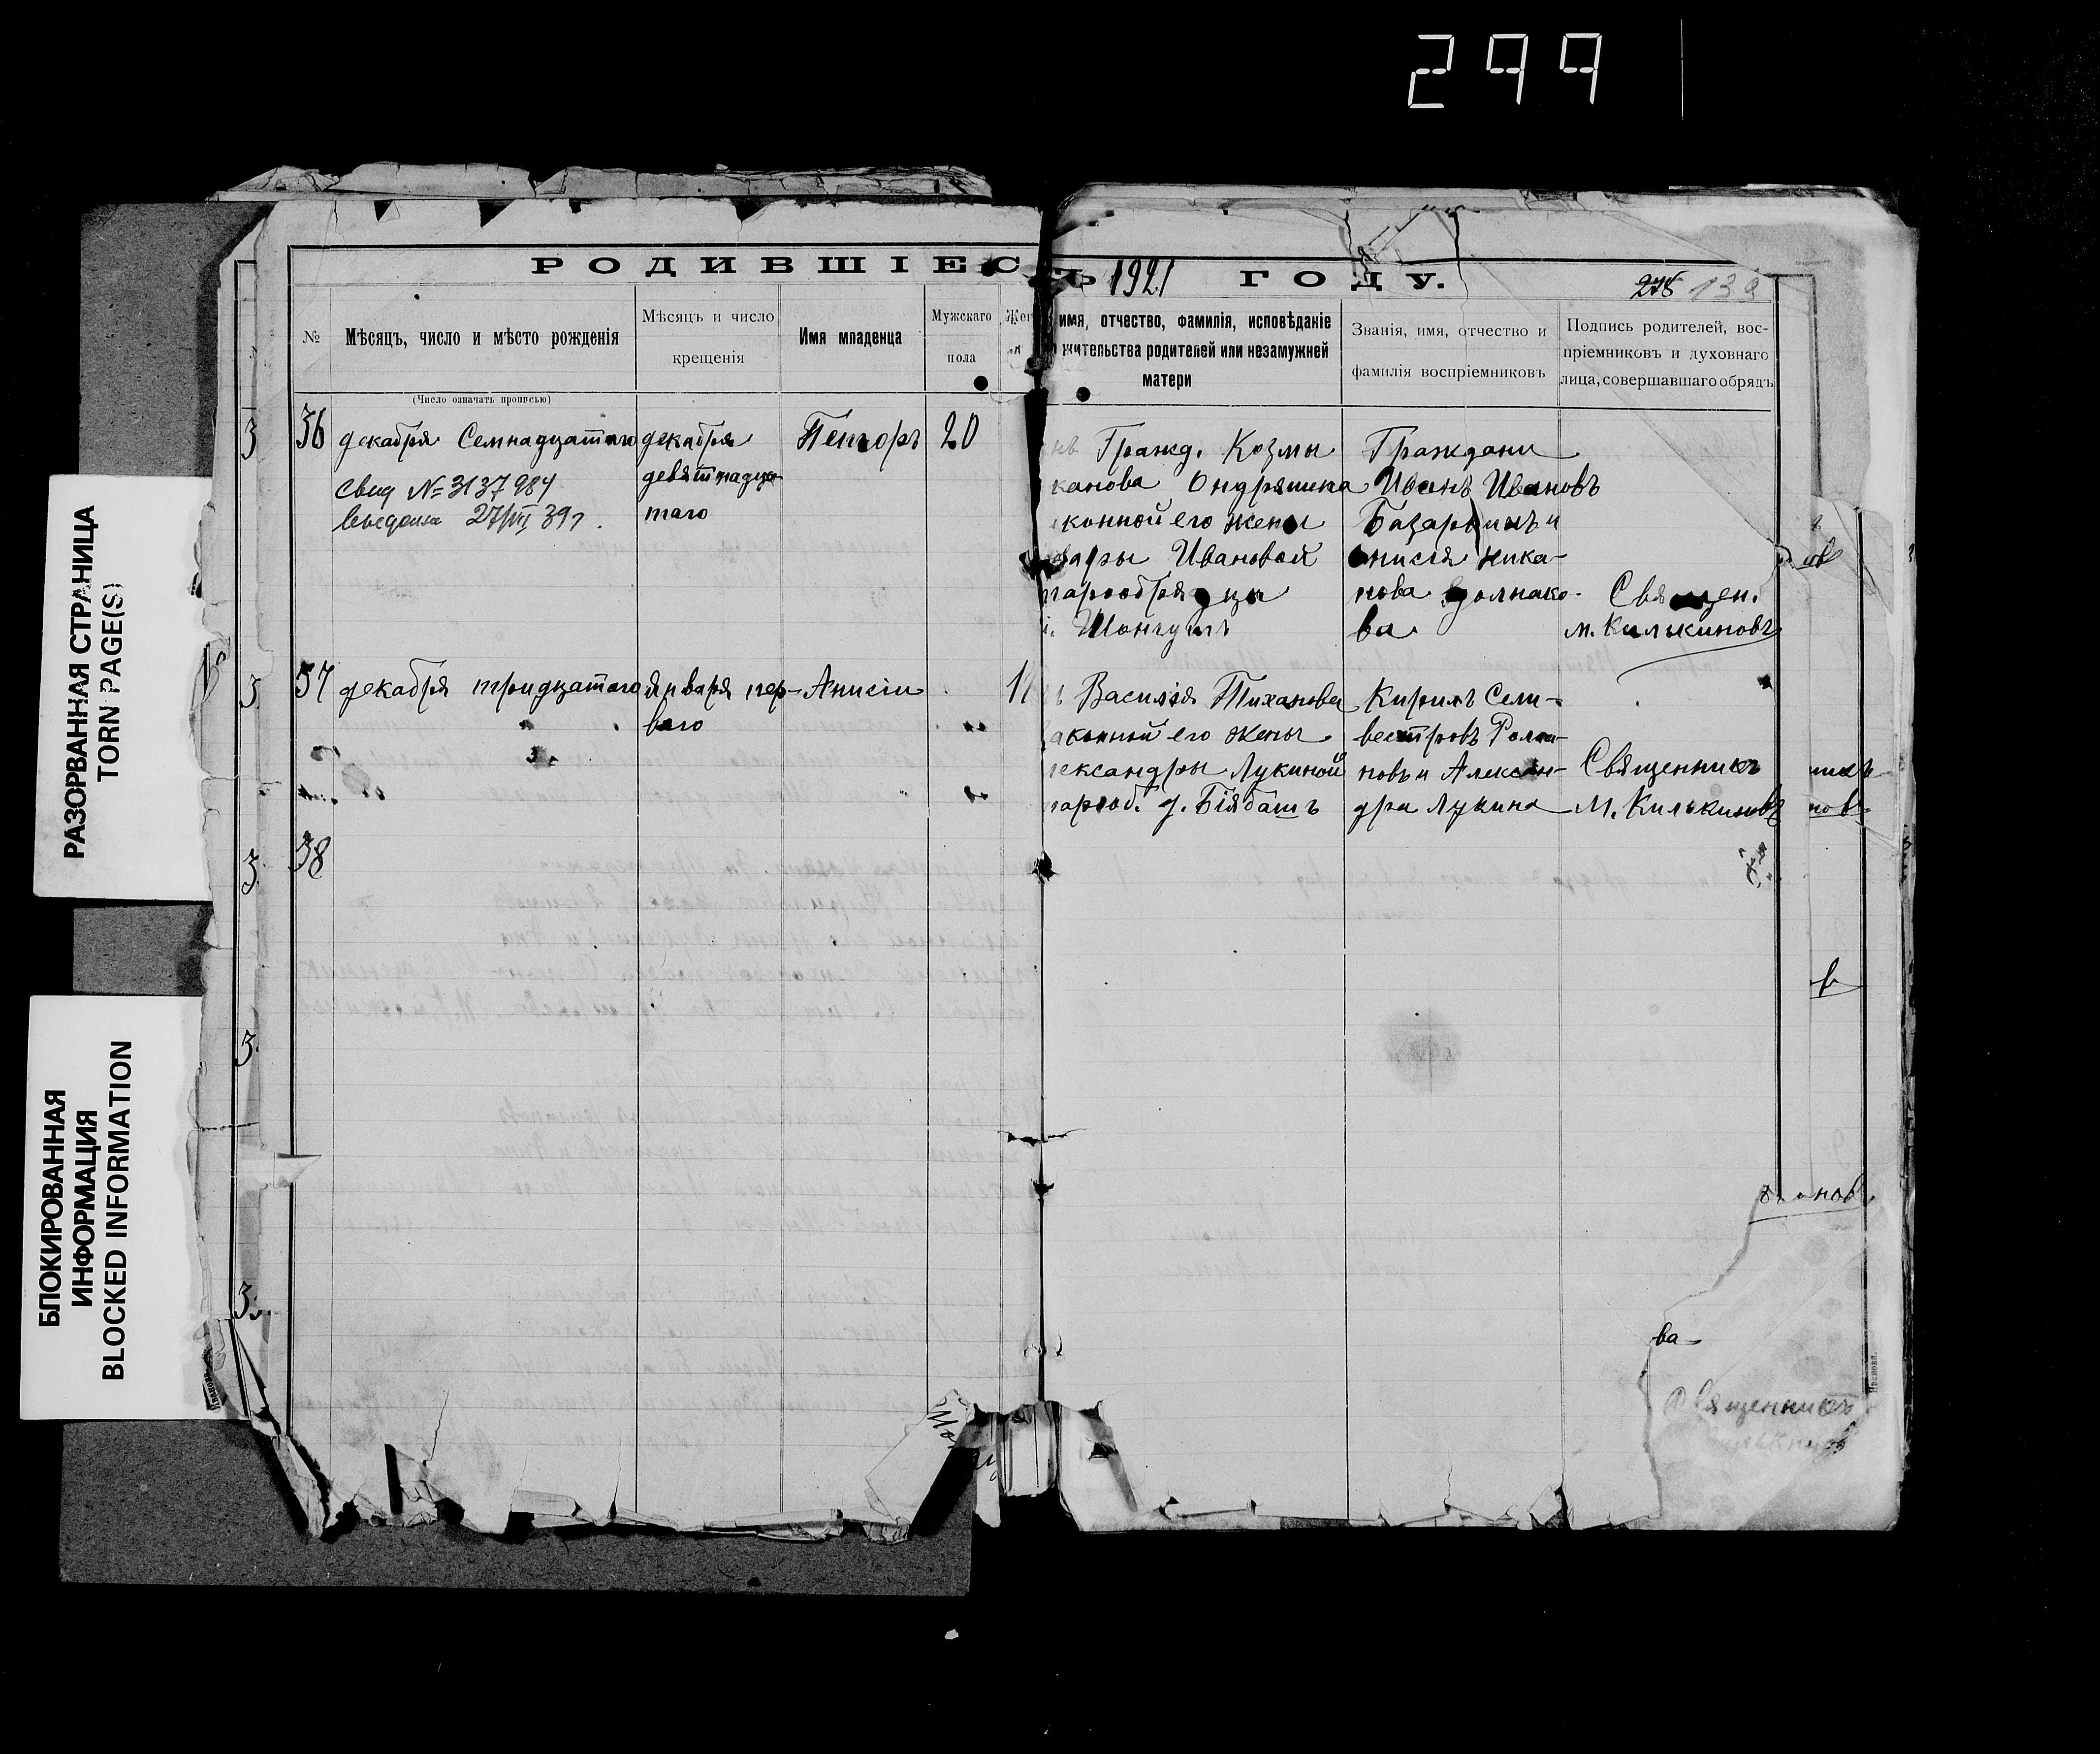 299
РАЗОРВАННАЯ СТРАНИЦА
TORN PAGE(S)
БЛОКИРОВАННАЯ
ИНФОРМАЦИЯ
BLOCKED INFORMATION
РОДИВШІЕС
1921 ГОДУ.
№
Мѣсяцъ, число и мѣсто рожденія
Мѣсяцъ и число
крещенія
Имя младенца
Мужскаго
пола
имя, отчество, фамилія, исповѣданіе
жительства родителей или незамужней
матери
Званія, имя, отчество и
фамилія воспріемниковъ
Подпись родителей, вос-
пріемниковъ и духовнаго
лица, совершавшаго обрядъ
(Число означать прописью)
36
декабря Семнадцатаго
свид № 3137984
27/VII 39г.
декабря
девятнадца-
таго
20
Гражд. Козмы
канова Ондряшина
конной его жены
Ивановой
Гражданин
Иванъ Ивановъ
Базаркинъ и
ника-
нова
ва
Священ.
М. Килькиновъ
37
декабря тридцатаго
января пер-
ваго
Анисіи
Василія Тиханова
аконной его жены
лександры Лукиной
д. Біябашъ
Кирилъ Сели-
вестровъ Рома-
новъ и Алексан-
дра Лукина
Священникъ
М. Килькиновъ
38
ва
Священникъ